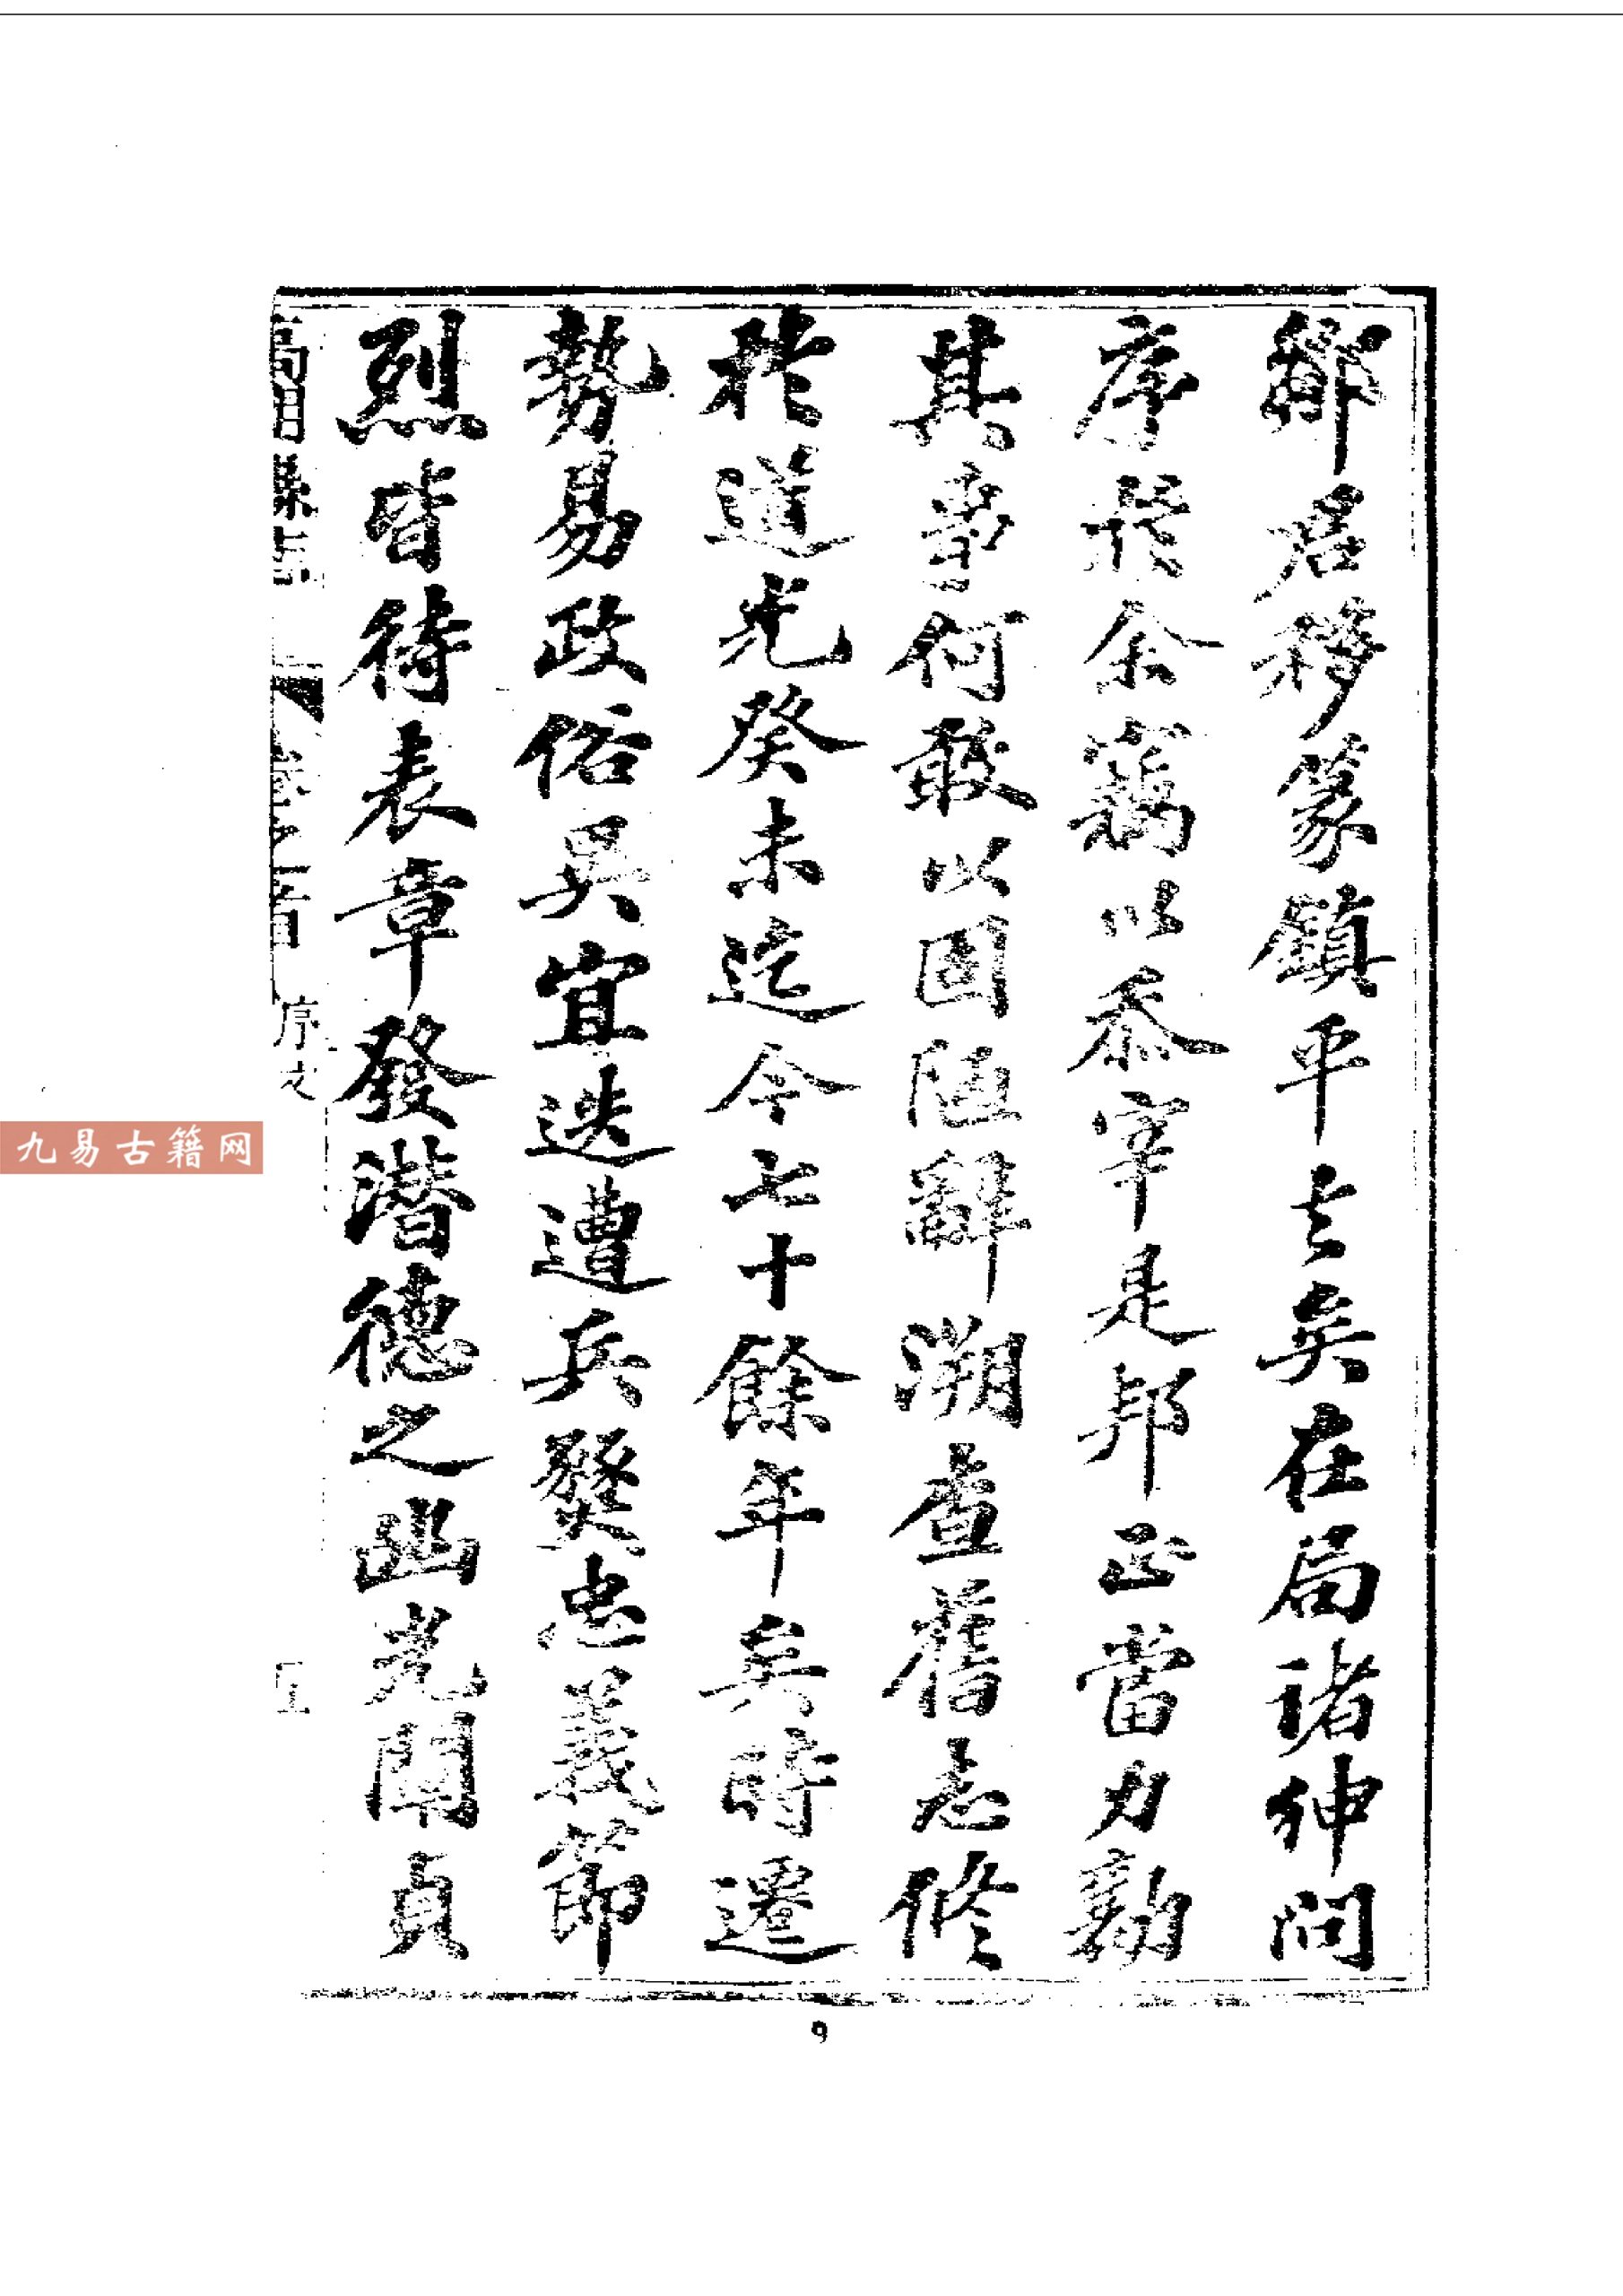 鄒君移篆鎮平去矣在局諸紳問
序於余竊以忝宰是邦正當力勷
其事何敢以固陋辭溯查舊志修
於道光癸未迄今七十餘年矣時遷
勢易政俗異宜迭遭兵燹忠義節
烈皆待表章發潛德之幽光闡貞
高明縣志 卷之首 序文 五
九易古籍网
9